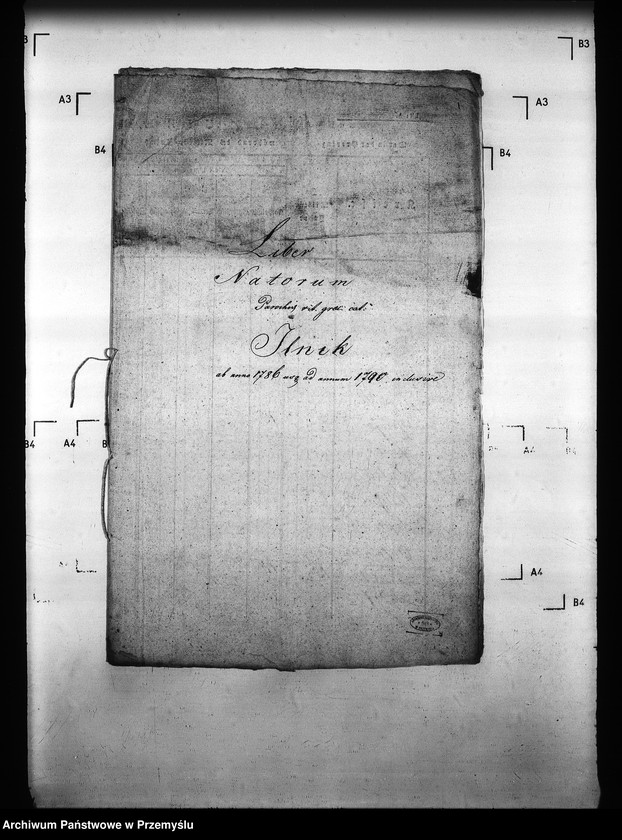 B3
B3
A3
A3
B4
B4
Liber
Natorum
Parochiæ rit. græc: cat:
Ilnik
ab anno 1786 usq ad annum 1790 inclusive
B4
A4
B
A4
A4
B4
Archiwum Państwowe w Przemyślu